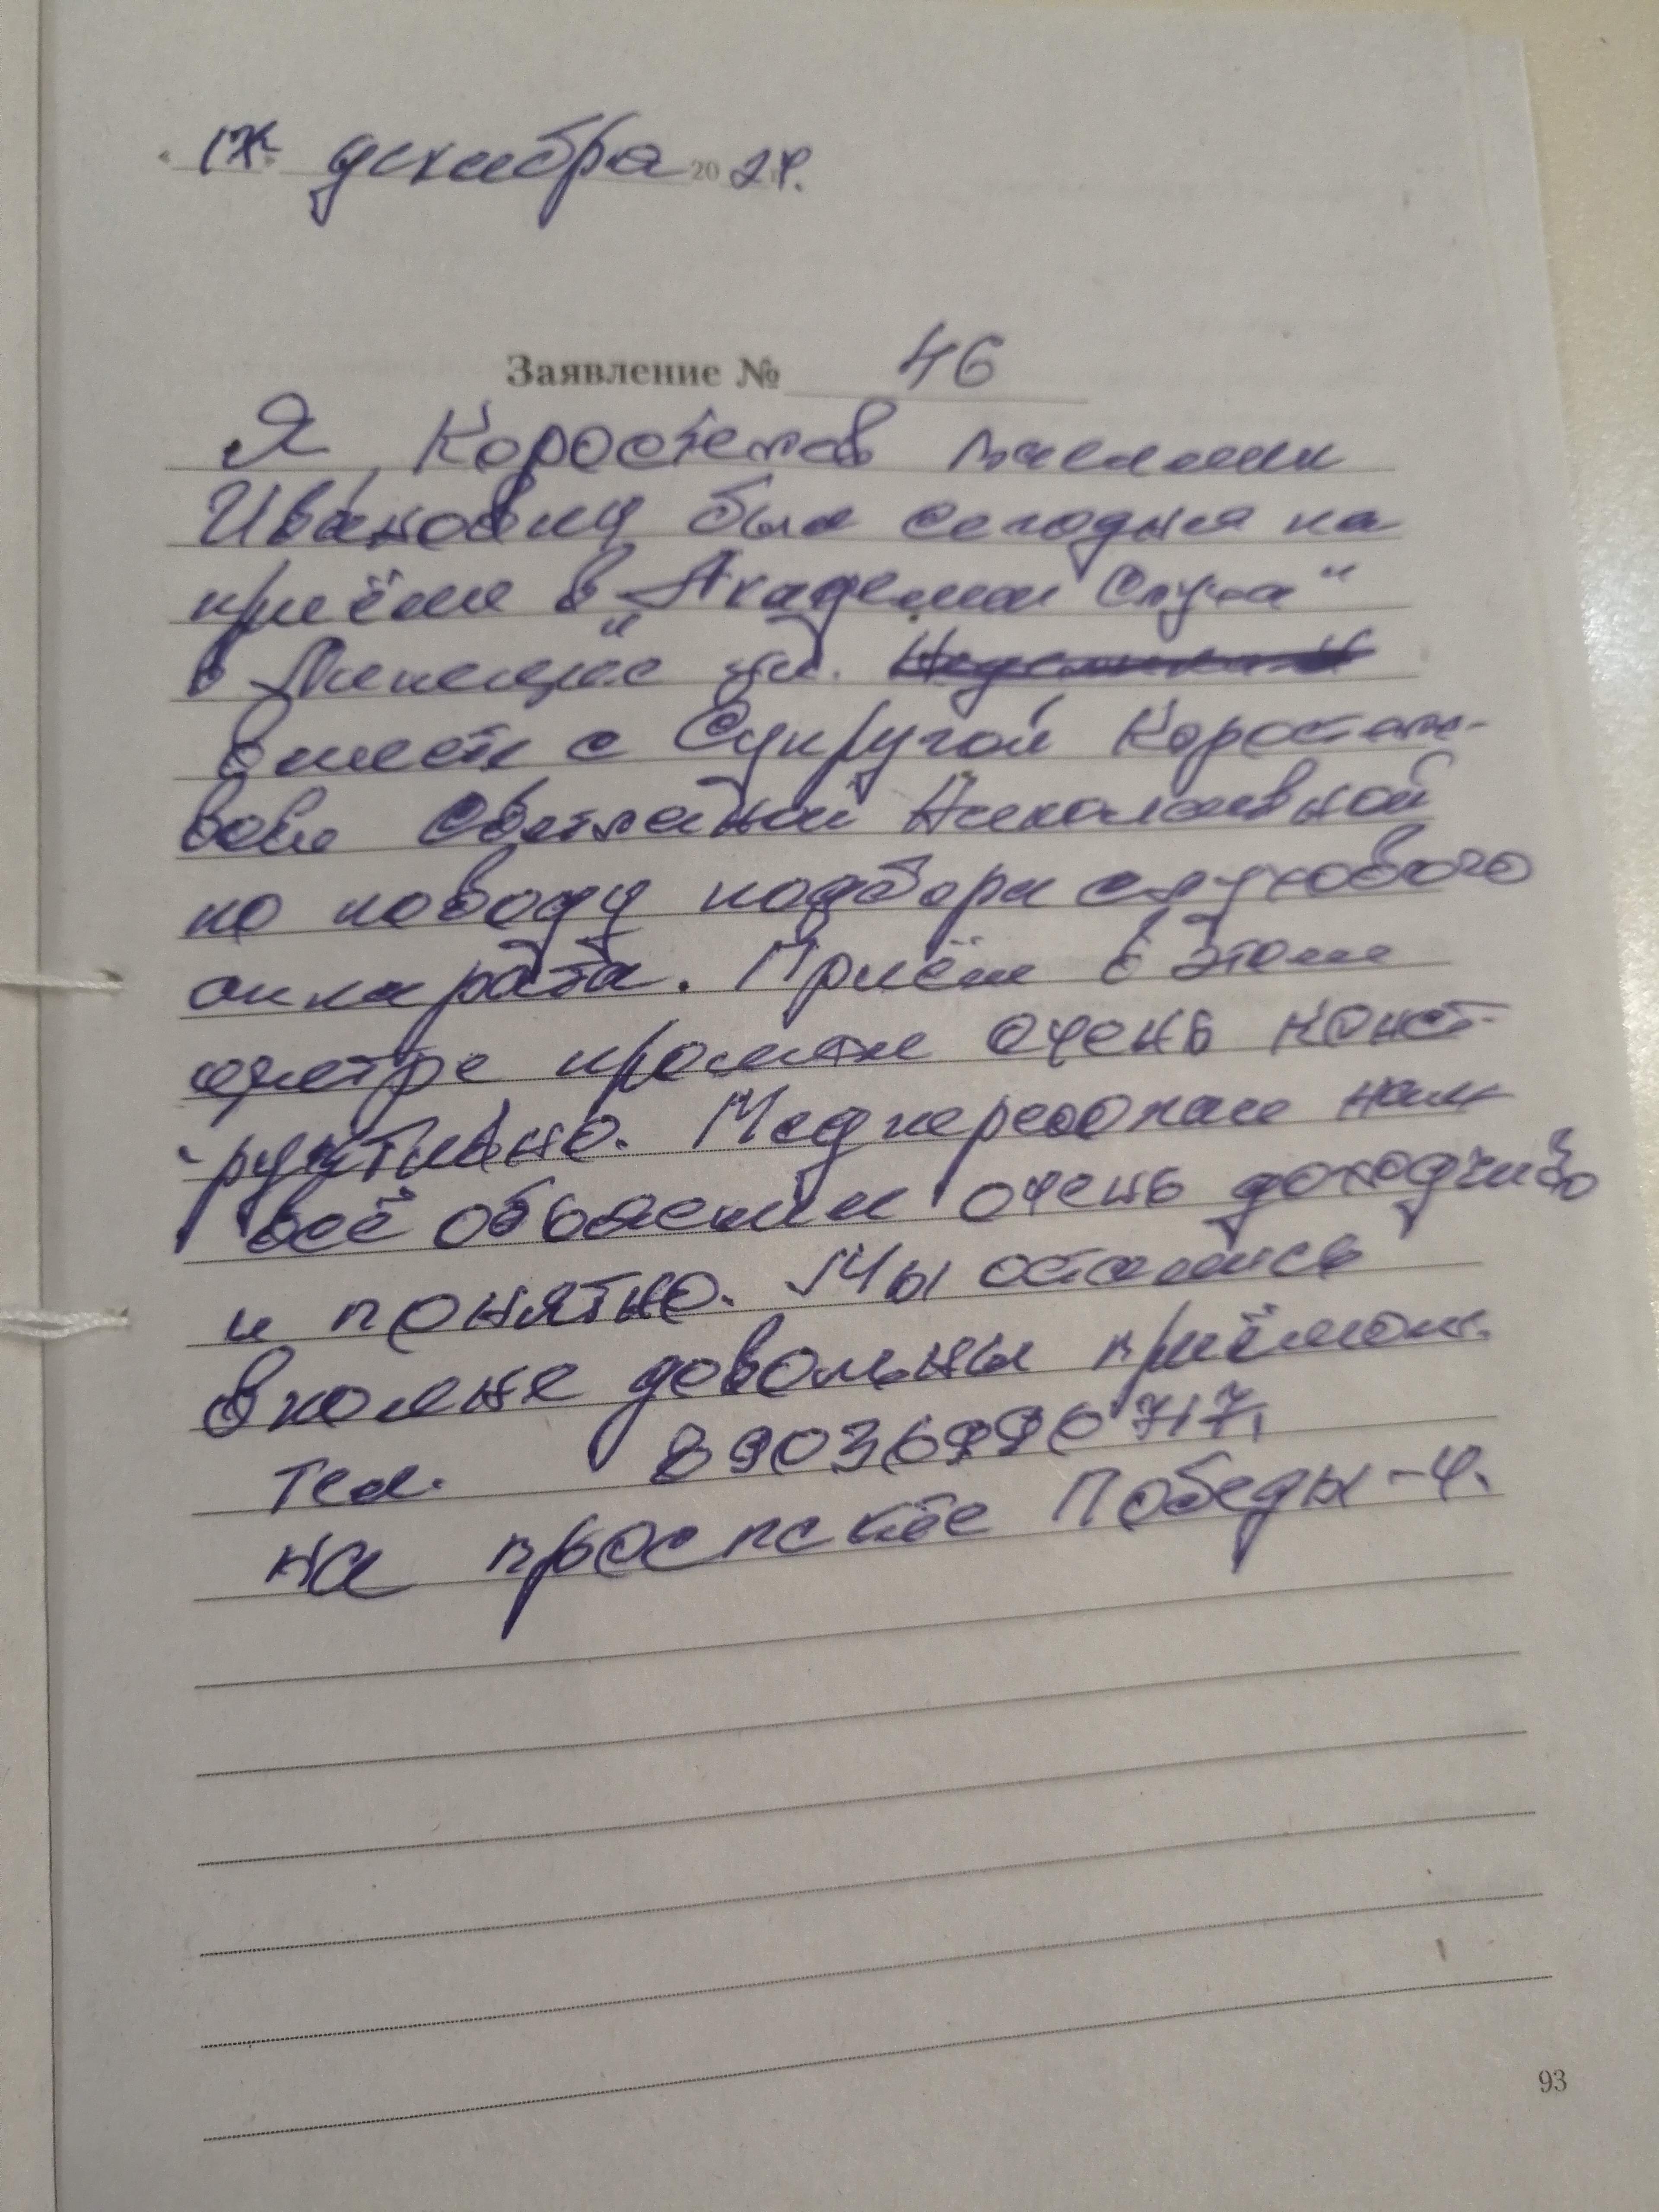 декабря 2024.
Заявление № 46
Я, Коростелев
Иванович был сегодня на
приёме в „Академии Слуха“
в Липецке
вместе с Супругой Коросте-
вой Светланой Николаевной
по поводу подбора слухового
аппарата. Приём в этом
центре прошел очень конст-
-руктивно. Медперсонал нам
всё объяснил очень доходчиво
и понятно. Мы остались
вполне довольны приёмом.
тел.
на проспекте Победы-4.
93